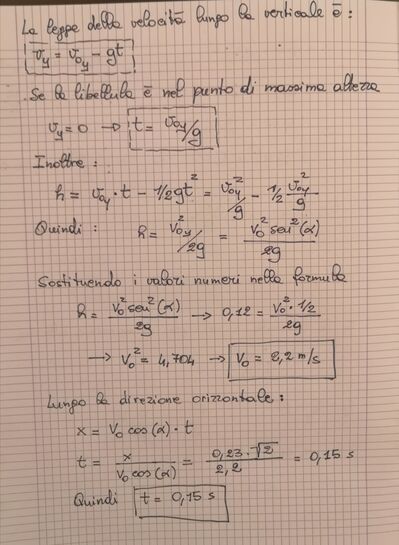 La legge della velocità lungo la verticale è:
v_y = v_oy - gt
Se la libellula è nel punto di massima altezza
v_y = 0 → t = v_oy/g
Inoltre:
h = v_oy · t - 1/2 gt² = v_oy²/g - 1/2 v_oy²/g
Quindi: h = v_oy²/2g = v_o² sen²(α)/2g
Sostituendo i valori numeri nella formula
h = v_o² sen²(α)/2g → 0,12 = v_o² · 1/2/2g
→ v_o² = 4,704 → v_o = 2,2 m/s
Lungo la direzione orizzontale:
x = v_o cos(α) · t
t = x/v_o cos(α) = 0,23 · √2/2,2 = 0,15 s
Quindi t = 0,15 s